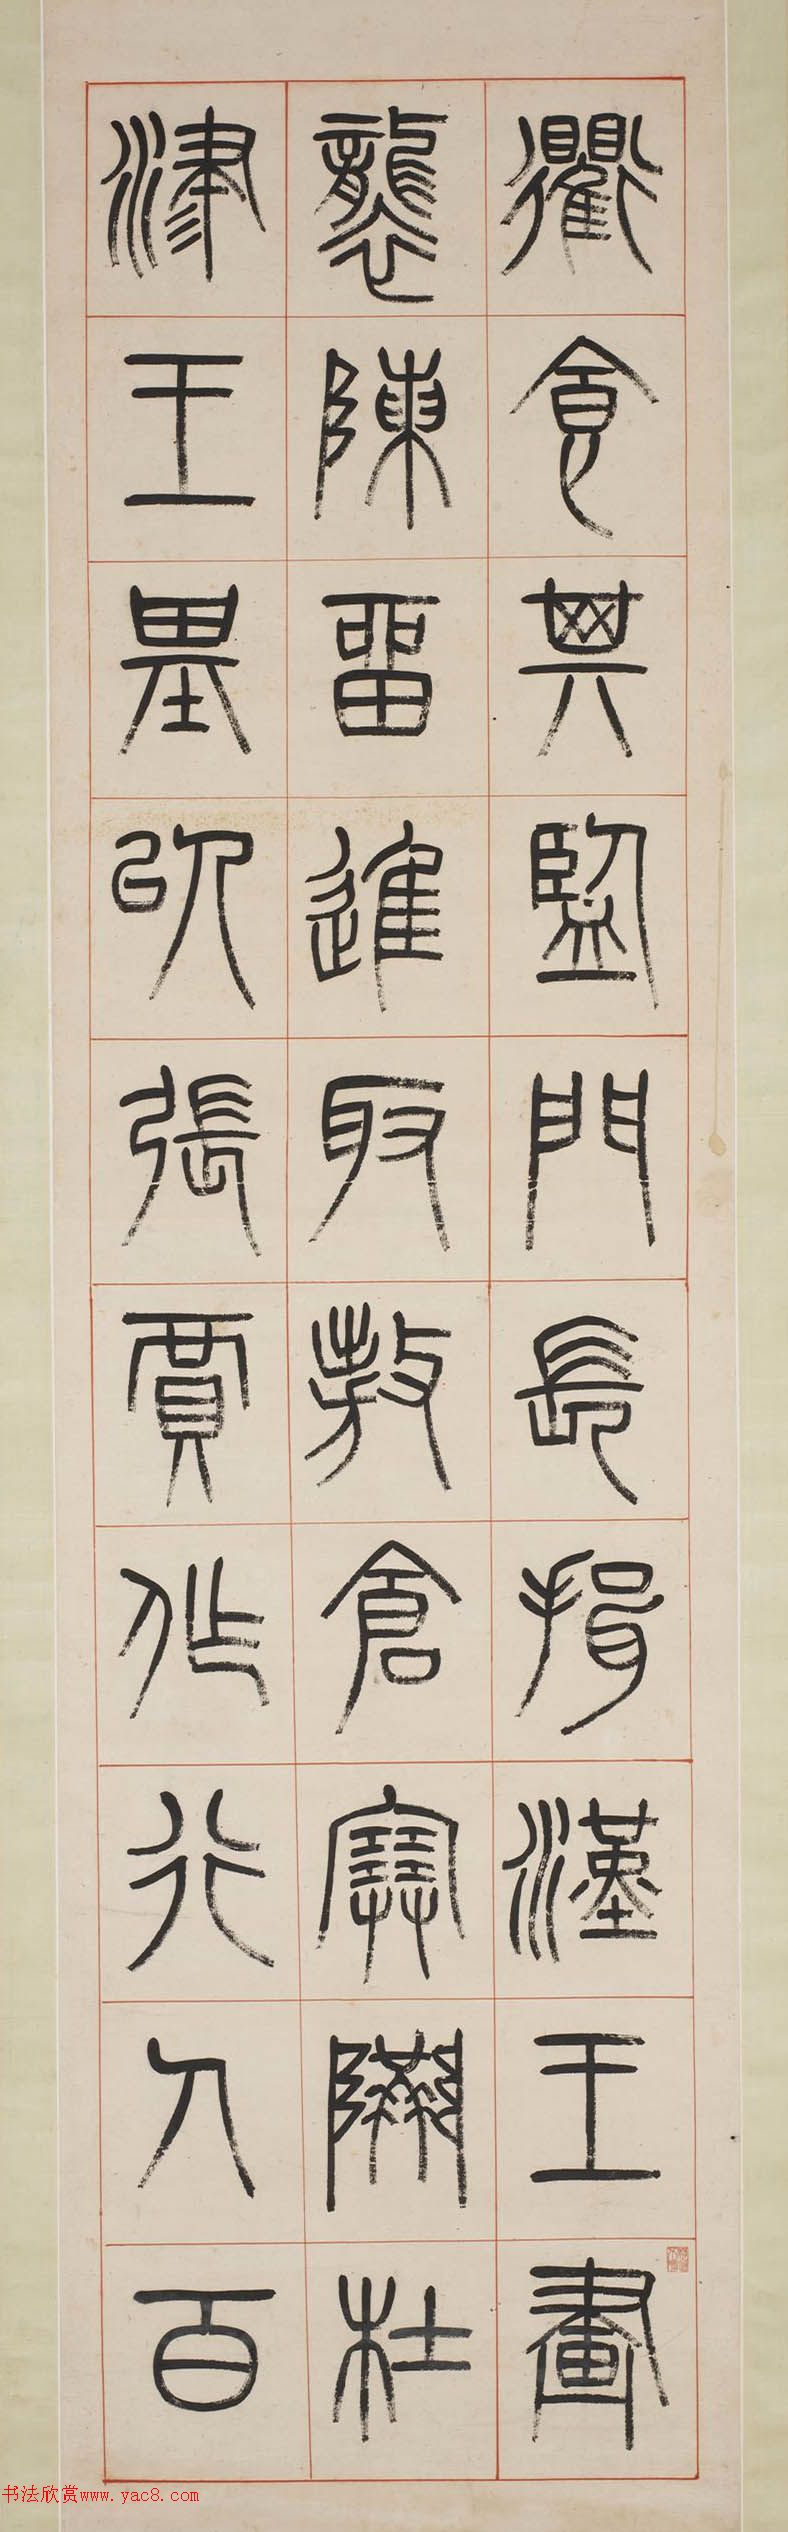 衢食其監門長揖漢王畫
襲陳留進取敖倉塞隘杜
津王基以張賈作行人百
书法欣赏www.yac8.com